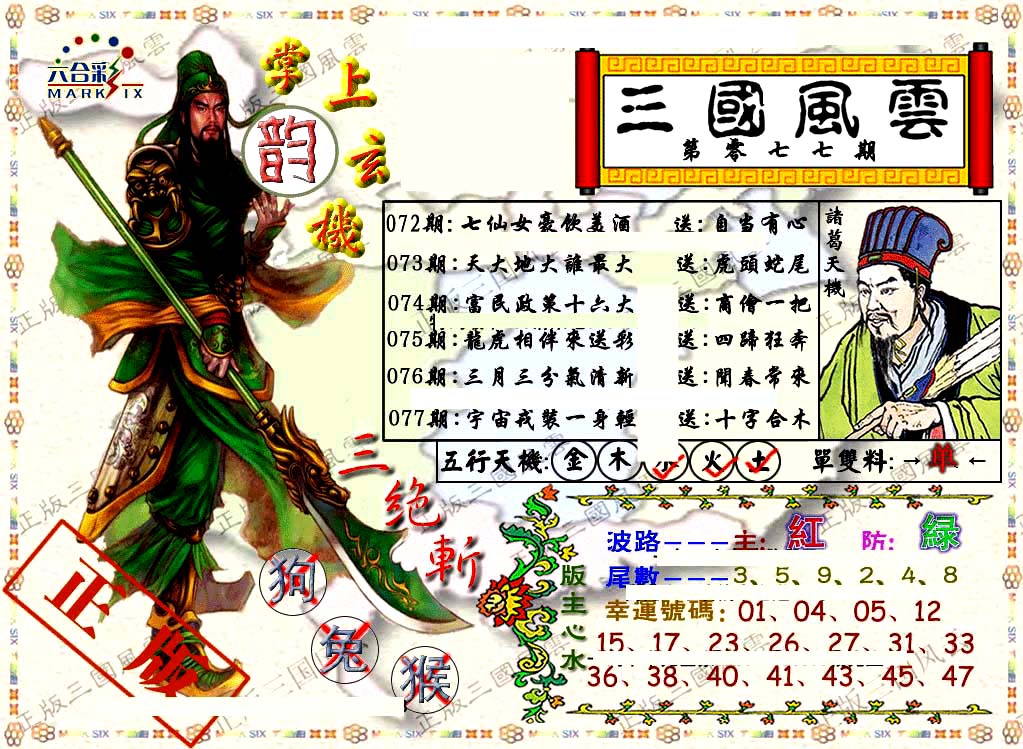 六合彩
MARK SIX
掌上玄機
韵
三國風雲
第零七七期
072期:七仙女豪飲美酒 送:自当有心
073期:天大地大誰最大 送:虎頭蛇尾
074期:富民政策十六大 送:商僧一把
075期:龍虎相伴來送彩 送:四蹄狂奔
076期:三月三分氣清新 送:聞春常來
077期:宇宙戎裝一身輕 送:十字合木
諸葛天機
五行天機:金木水火土 單雙料:→单←
三絕斬
狗
兔
猴
正版
版主心水
波路---主:紅 防:綠
尾數---3、5、9、2、4、8
幸運號碼:01、04、05、12
15、17、23、26、27、31、33
36、38、40、41、43、45、47